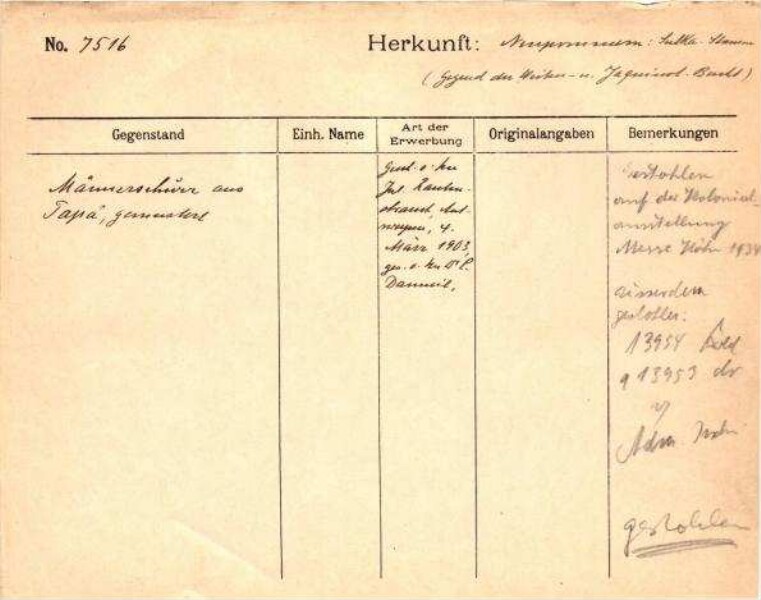 No. 7516
Herkunft: Neupommern: Sulka-Stamm
(Gegend der Weiten- u. Jaquinot-Bucht)
Gegenstand
Einh. Name
Art der Erwerbung
Originalangaben
Bemerkungen
Männerschurz aus
Tapa, gemustert
Jul. Rauten-
strauch, Ant-
werpen, 4.
März 1903,
ges. v. Dr.
gestohlen
auf der Kolonial-
ausstellung
Messe Köln 1934
ausserdem
gestohlen:
13954
13953
gestohlen